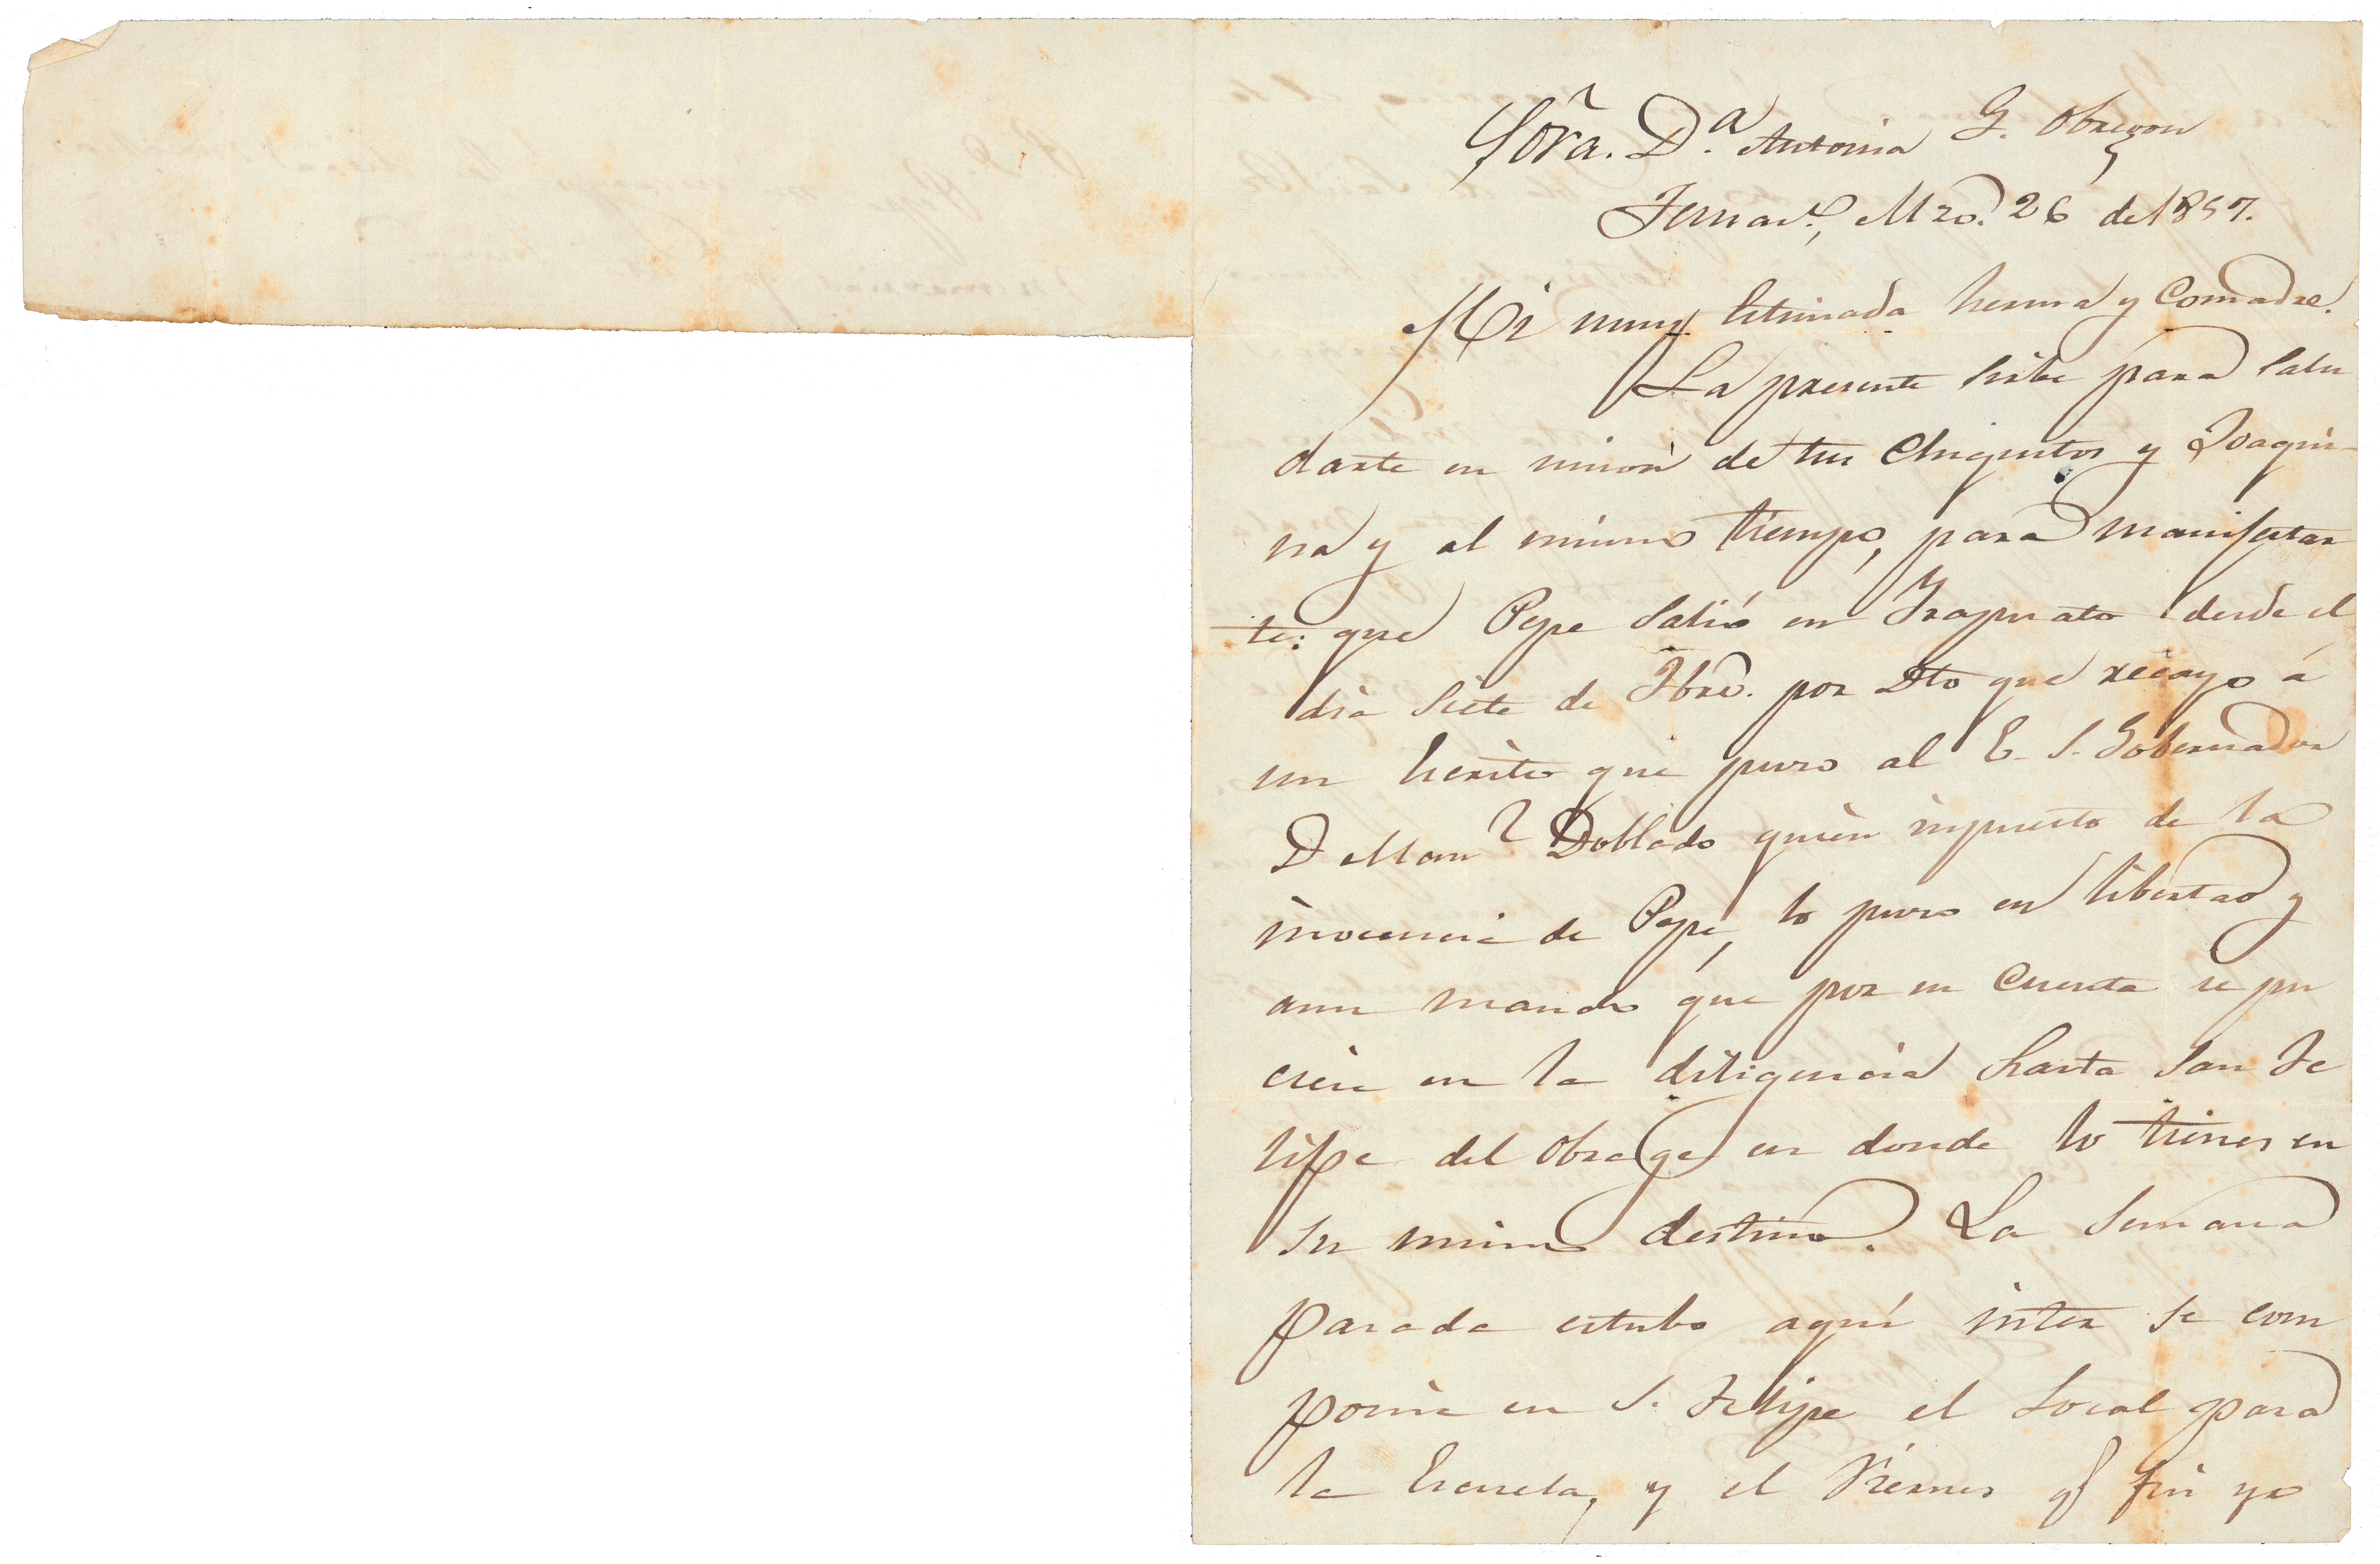 Sõra. D.ª Antonia G. Obregon
Mzo. 26 de 1857.
Mi muy Estimada herma y Comadre.
La presente sirbe para salu
darte en union de tus Chiquitos y Joaqui-
na y al mismo tiempo, para manifestar
te: que Pepe salió en Irapuato desde el
dia siete de por Dto que recayo á
un Escrito que puso al E. S. Gobernador
D Man.l Doblado quien inpuesto de la
inocencia de Pepe, lo puso en libertad y
aun mando que por su Cuenta se pu
ciese en la diligencia hasta San Fe
lipe del Obrage en donde lo tienes en
su mismo destino. La Semana
pasada estubo aquí inter se com
ponia en S. Felipe el Local para
la Escuela, y el Viernes qe fui yo